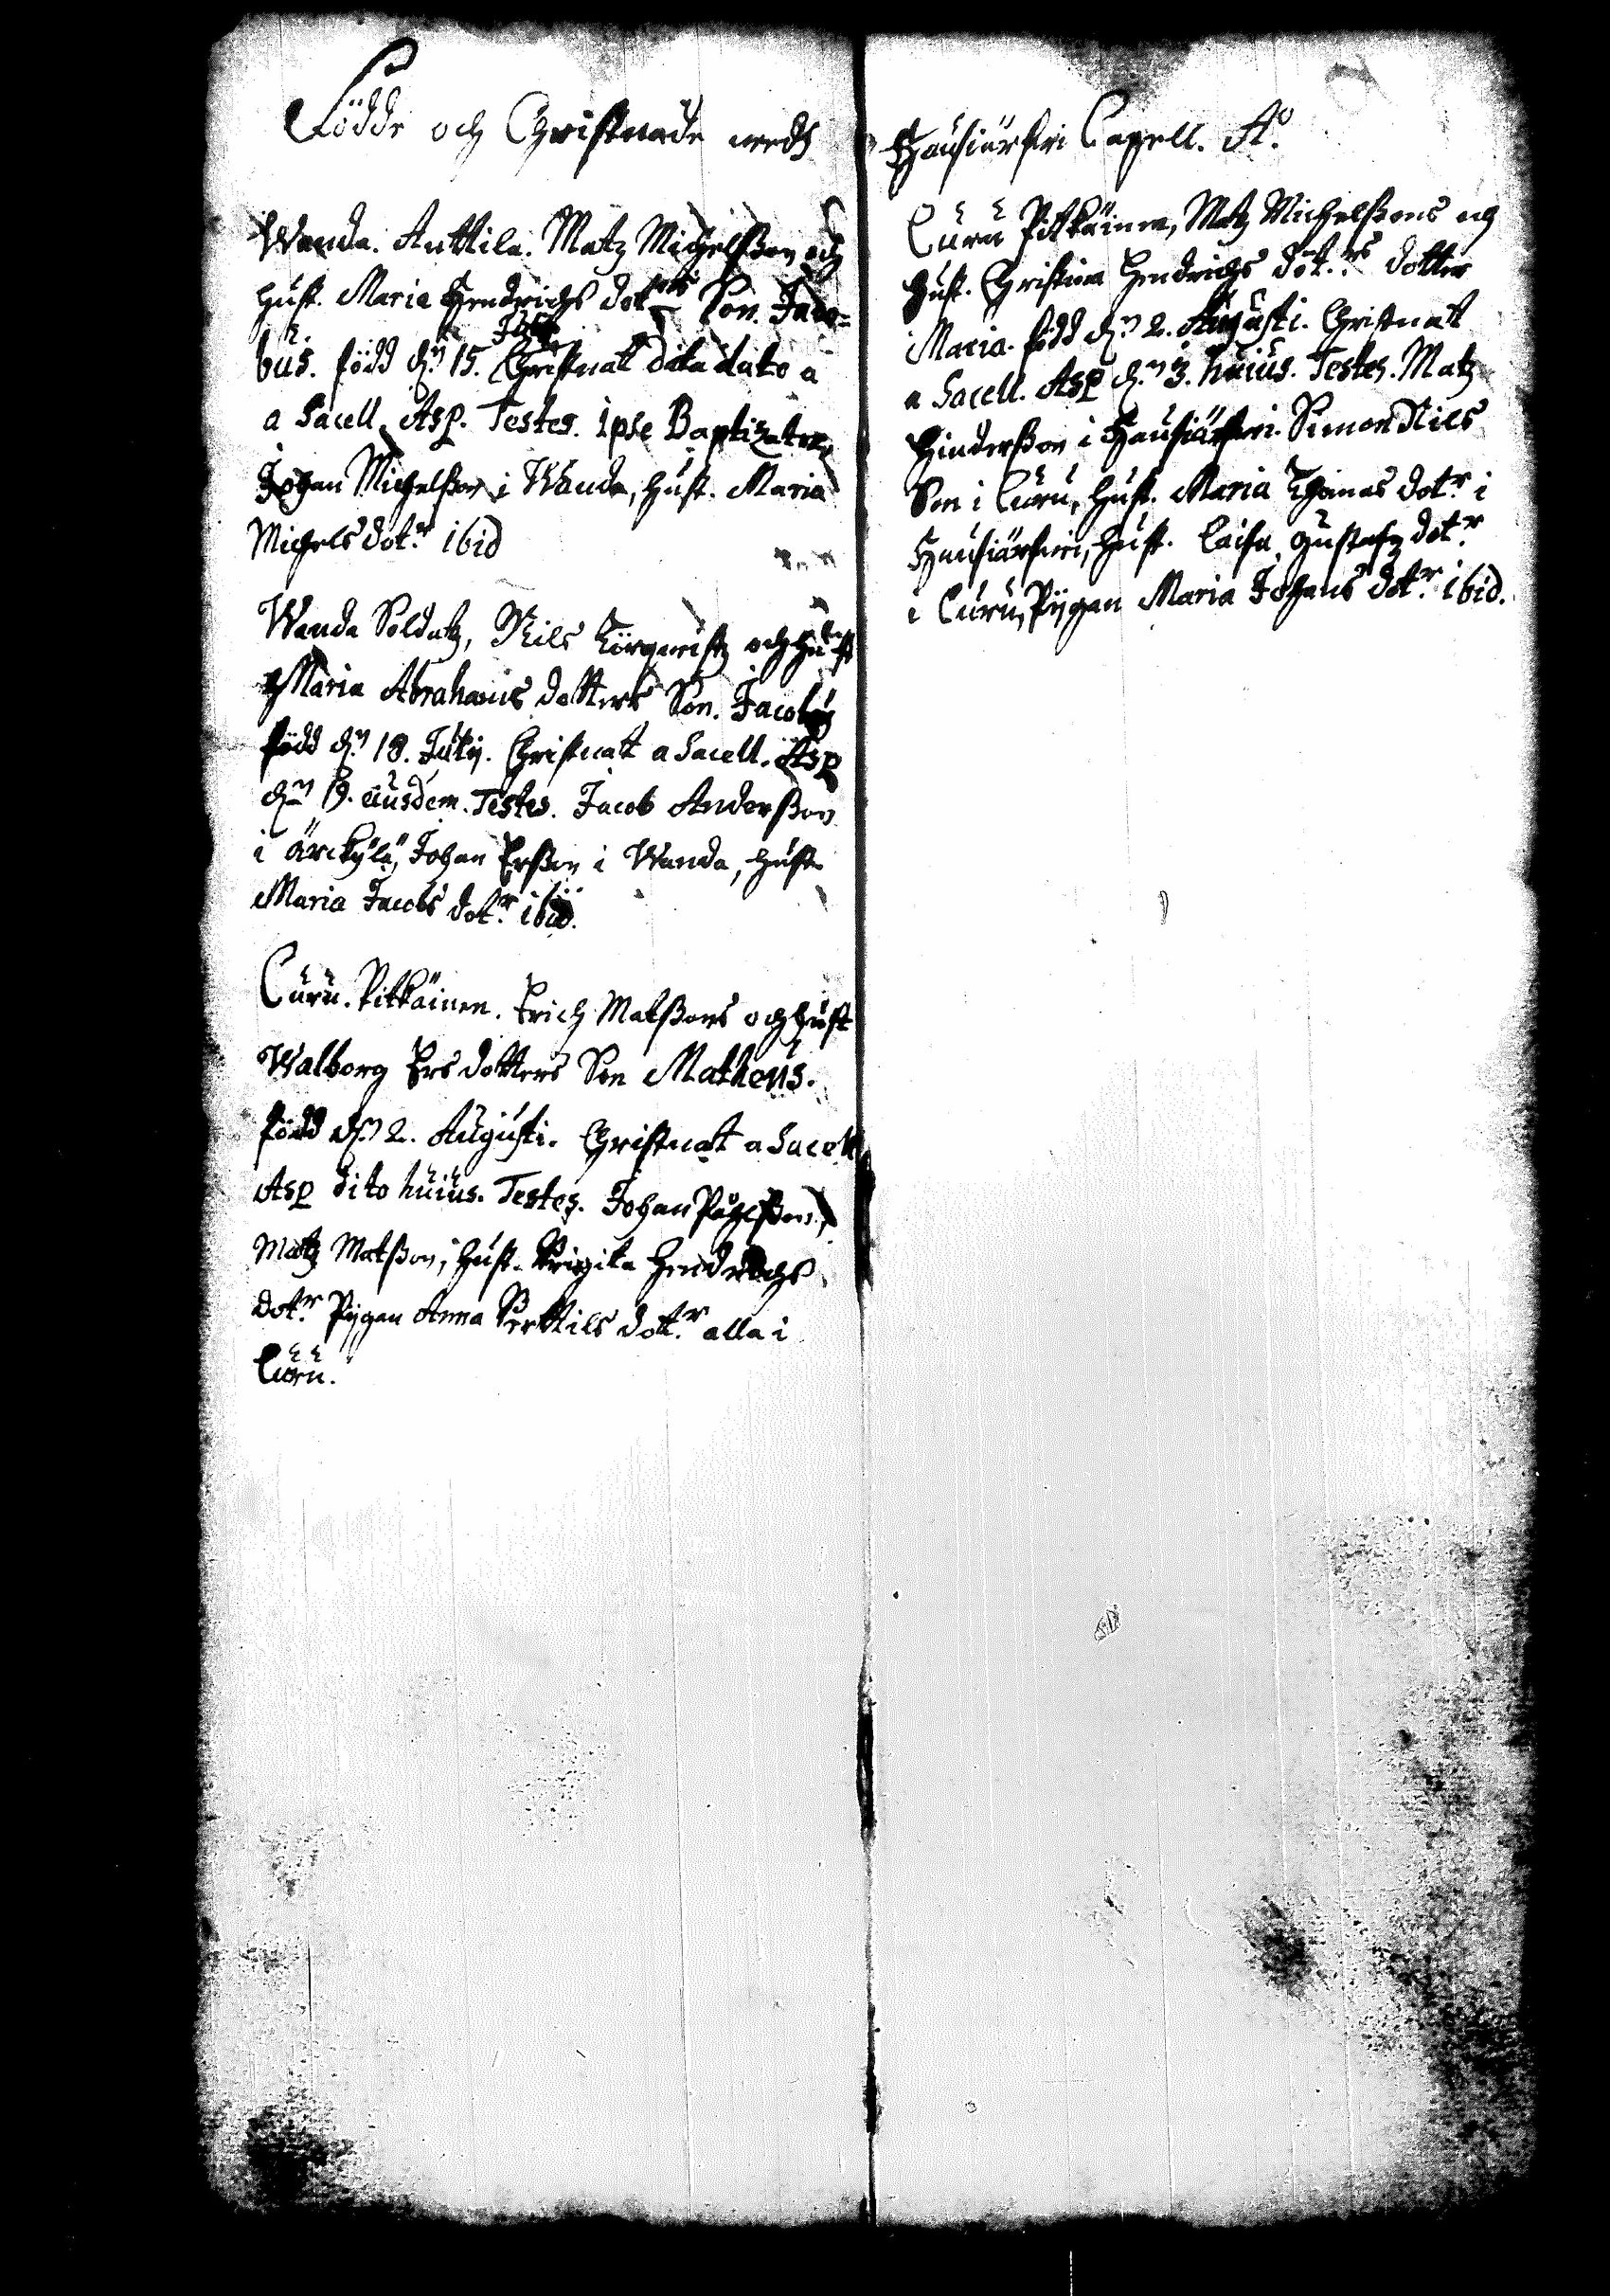 Födde och Christnade wedh
Wanda. Anttila. Matz Michelsson och
Hust. Maria Hendrichs dotrs Son. Jaco=
bus. född d.n 15. July Christnat dito dato a
a Sacell. Asp. Testes. Ipse Baptizator,
Johan Michelsson i Wanda, Hust. Maria
Michels dot.r ibid
Wanda Soldatz, Nils och Hust
Maria Abrahams dotters Son. Jacobus
född d.n 18. July. Christnat a Sacell. Asp
d.n 19. eiusdem. Testes. Jacob Andersson
i Ärckÿlä, Johan Ersson i Wanda, Hust
Maria Jacobs dot.r ibid.
Curu. Pitkäinen. Erich Matssons och Hust
Walborg Ers dotters Son Matheus.
född d.n 2. Augusti. Christnat a Sacell
Asp dito huius. Testes. Johan Påhlsson,
Matz Matsson, Hust. Brigita Hendrichs
dot.r Pygan Anna Berttils dott.r alla i
Curu.
Hausiärfwi Capell. A.o
Curu Pitkäinen, Matz Michelssons och
Hust. Christina Hendrichs dot.rs dotter
Maria. född d.n 2. Augusti. Christnat
a Sacell. Asp d.n 3. huius. Testes. Matz
Hindersson i Hausiärfwi. Simon Nils
Son i Curu, Hust. Maria Thomas dot.r i
Hausiärfwi, Hust. Caisa Gustafz dot.r
i Curu, Pygan Maria Johans dot.r ibid.